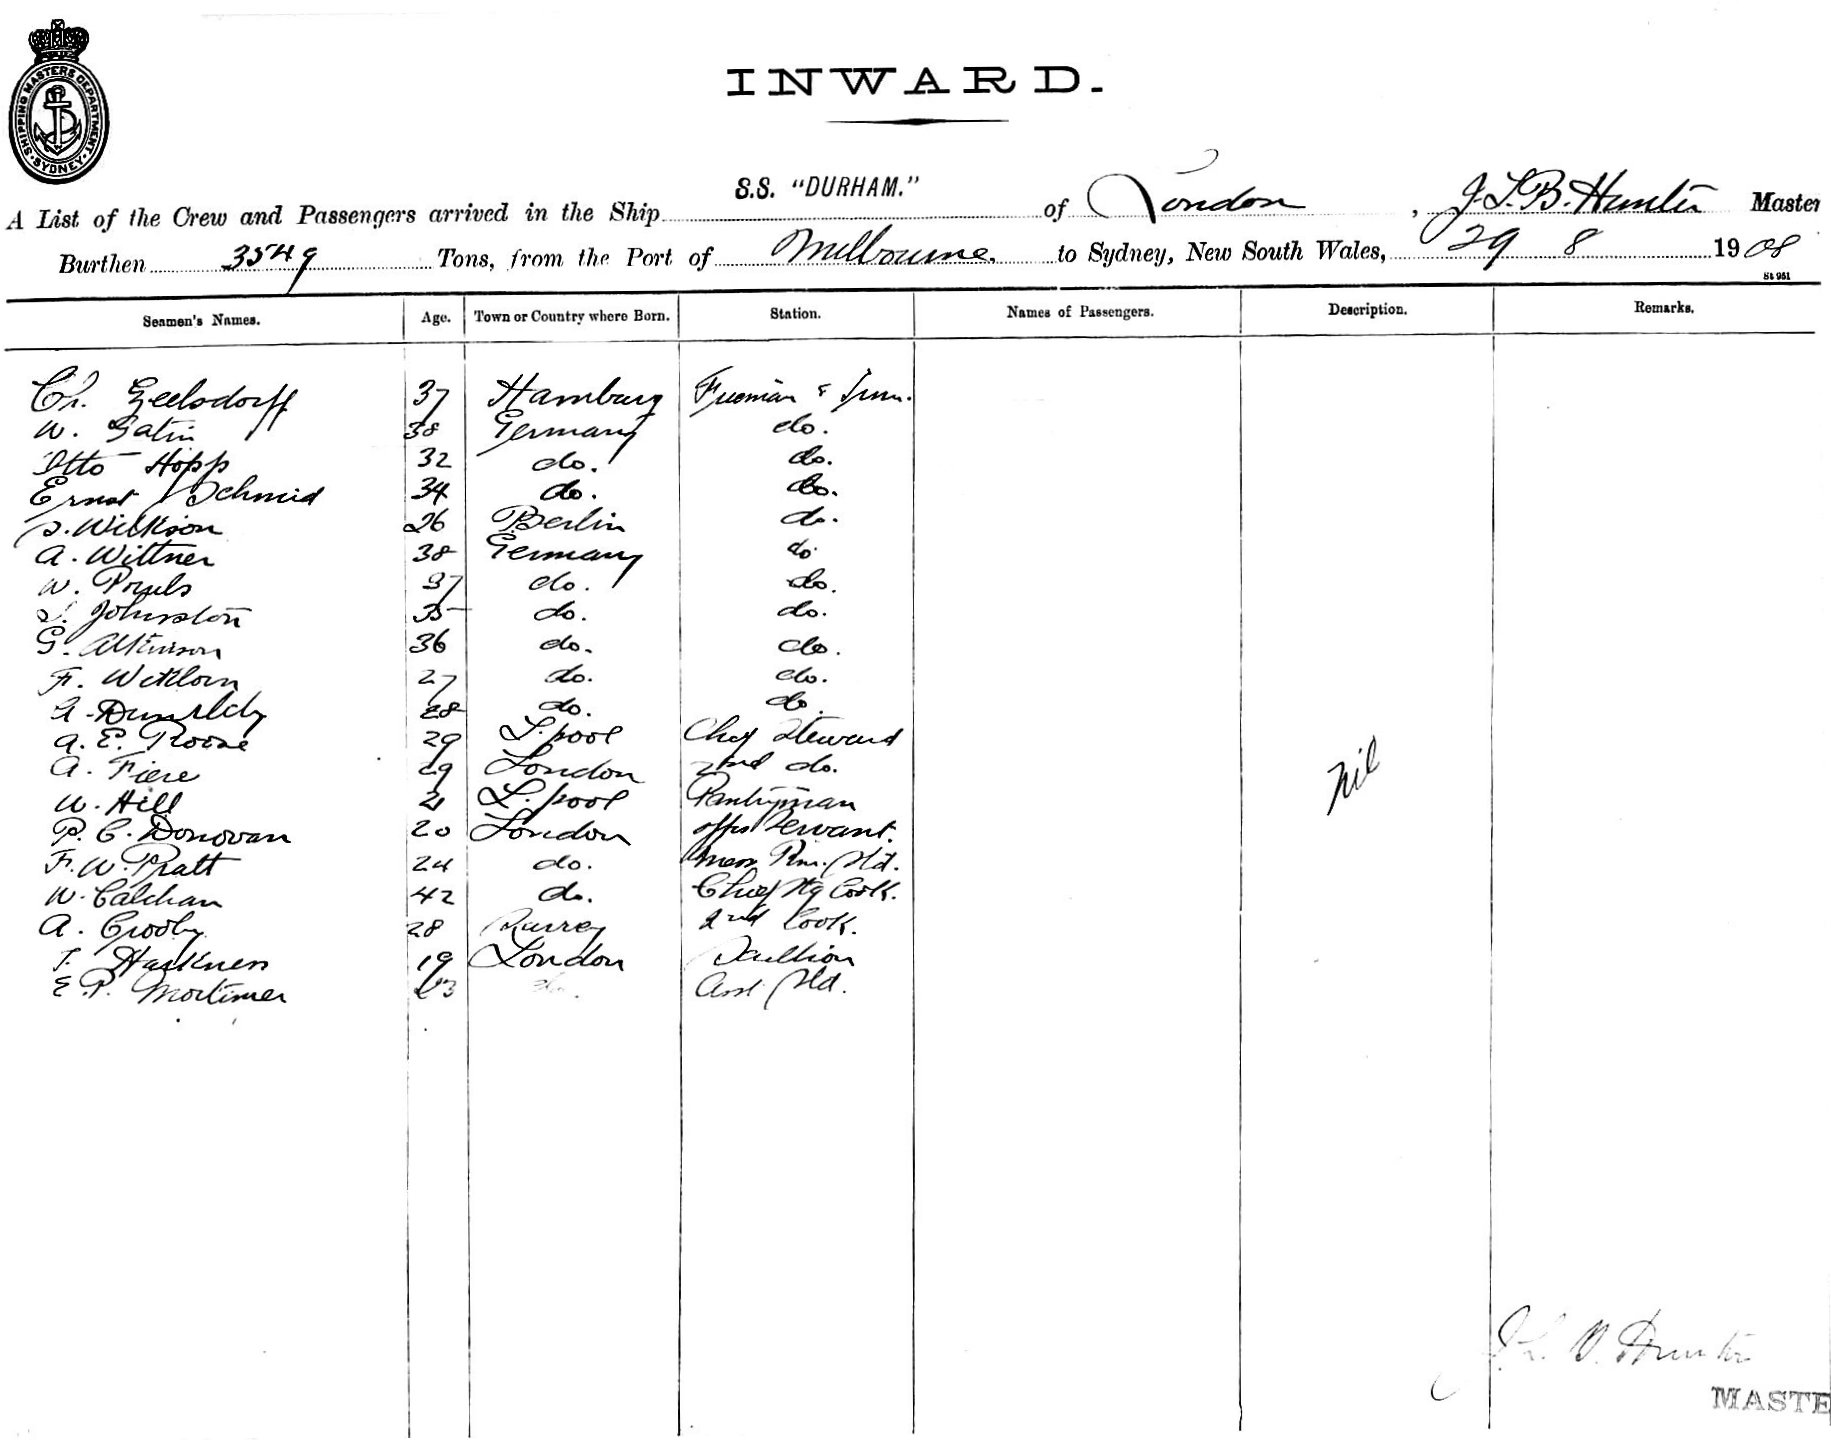 SHIPPING MASTERS DEPARTMENT
SYDNEY
INWARD.
A List of the Crew and Passengers arrived in the Ship S.S. "DURHAM." of London, J. L. B. Hunter Master
Burthen 3549 Tons, from the Port of Melbourne. to Sydney, New South Wales, 29 8 1908
St 951
Seamen's Names. Age. Town or Country where Born. Station. Names of Passengers. Description. Remarks.
Ch. Geelsdorff 37 Hamburg Fireman & Trm.
W. Gatin 38 Germany do.
Otto Hopp 32 do. do.
Ernst Schmid 34 do. do.
Wilkson 26 Berlin do.
A. Wittner 38 Germany do
W. 37 do. do.
Johnston 35 do. do.
G. Atkinson 36 do. do.
F. 27 do. do.
28 do. do.
A. E. Roose 29 L.pool Chef Steward
A. Fiere 29 London 2nd do.
W. Hill 21 L.pool Pantryman
P. C. Donovan 20 London offrs Servant.
F. W. Pratt 24 do. Mess Rm. Std.
W. Calchan 42 do. Chief Cook.
A. Crosby 28 Surrey 2nd Cook.
T. Harkness 19 London Scullion
E. P. Mortimer 23 do. Asst Std.
Nil
J. L. B. Hunter
MASTE